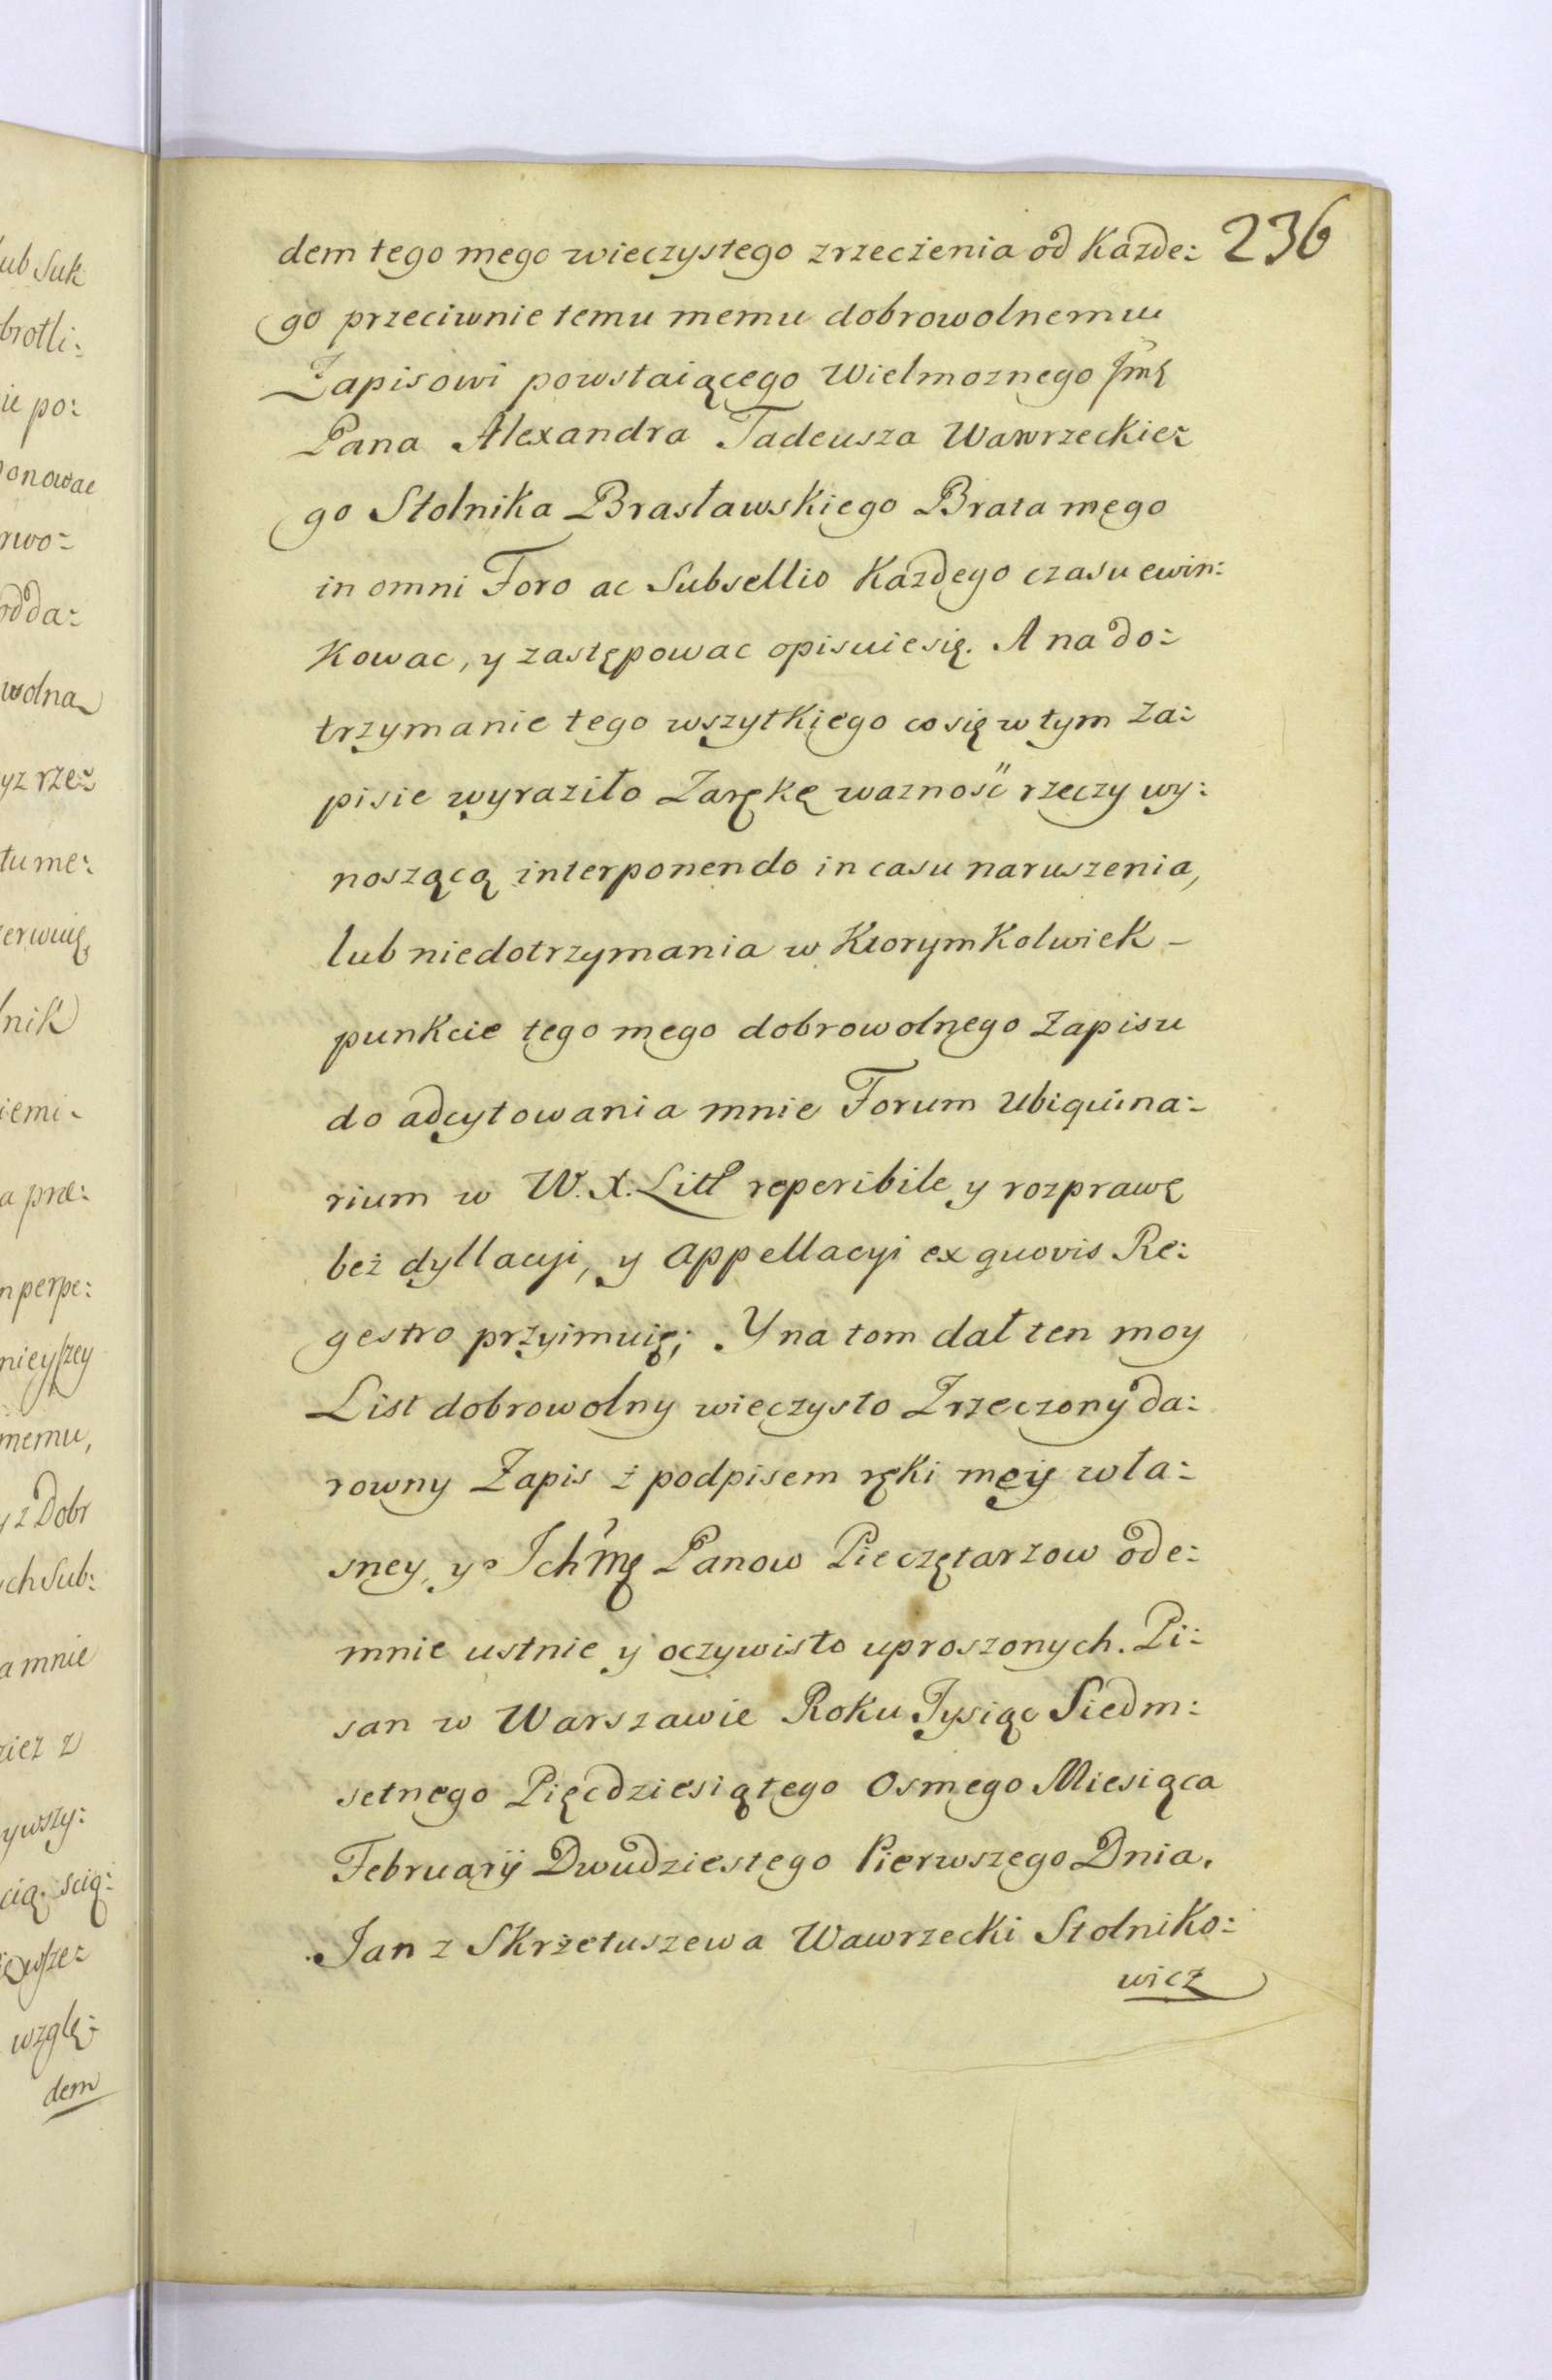 236
dem tego mego wieczystego zrzecżenia od Kazde:
go przeciwnie temu memu dobrowolnemu
Zapisowi powstaiącego Wielmoznego Jmę
Pana Alexandra Tadeusza Wawrzeckie:
go Stolnika Brasławskiego Brata mego
in omni Foro ac Subsellio Kazdego czasu ewin:
Kowac, y zastępowac opisuie się. A na do:
trzymanie tego wszytkiego co się w tym za:
pisie wyraziło Zarękę waznosć rzeczy wy:
noszącą interponendo in casu naruszenia,
lub niedotrzymania w KtorymKolwiek -
punKcie tego mego dobrowolnego Zapisu
do adcytowania mnie Forum Ubiquina:
rium w W. X. Litt reperibile y rozprawę
beż dyllacyi, y appellacyi ex quovis Re:
gestro przyimuię; Y na tom dał ten moy
List dobrowolny wieczysto Zrzeczony da:
rowny Zapis ż podpisem ręki mey wła:
sney, y Ichmę Panow Pieczętarzow ode:
mnie ustnie y oczywisto uproszonych. Pi:
san w Warszawie Roku Tysiąc Siedm:
setnego Pięcdziesiątego Osmego Miesiąca
Februarÿ Dwudziestego Pierwszego Dnia.
Jan z Skrżetuszewa Wawrzecki Stolniko:
wicz
ub Suk
brotli:
ie po:
onowac
rwo:
odda:
wolna
yz rze:
tu me:
lnik
iemi
a prze:
n perpe:
nieyszey
memu,
y z Dobr
ych Sub:
a mnie
ywszy:
wzglę:
dem